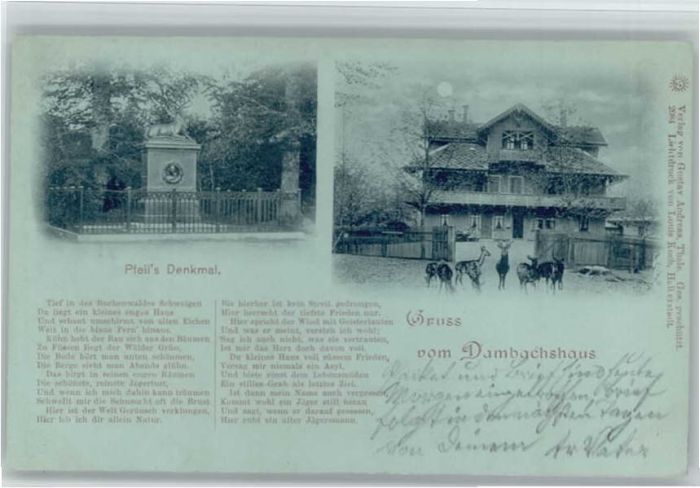 Pfeil's Denkmal.
Tief in des Buchenwaldes Schweigen
Da liegt ein kleines enges Haus
Und schaut umschirmt von alten Eichen
Weit in die blaue Fern' hinaus.
Kühn hebt der Bau sich aus den Bäumen
Zu Füssen liegt der Wälder Grün,
Die Bode hört man unten schäumen,
Die Berge sieht man Abends glühn.
Das birgt in seinen engen Räumen
Die schönste, reinste Jägerlust,
Und wenn ich mich dahin kann träumen
Schwellt mir die Sehnsucht oft die Brust
Hier ist der Welt Geräusch verklungen,
Hier bin ich dir allein Natur.
Bis hierher ist kein Streit gedrungen,
Hier herrscht der tiefste Frieden nur.
Hier spricht der Wind mit Geisterlauten
Und was er meint, versteh ich wohl;
Sag ich auch nicht, was sie vertrauten,
Ist mir das Herz doch davon voll.
Du kleines Haus voll ew'gem Frieden,
Versag mir niemals ein Asyl,
Und biete einst dem Lebensmüden
Ein stilles Grab als letztes Ziel.
Ist dann mein Name auch vergessen
Kommt wohl ein Jäger still heran
Und sagt, wenn er darauf gesessen,
Hier ruht ein alter Jägersmann.
Gruss
vom Dambachshaus
Packet und Brief
Morgen eingetroffen, Brief
folgt in den nächsten Tagen
Von Deinem Vater
Verlag von Gustav Andreas, Thale. Ges. geschützt.
2084 Lichtdruck von Louis Koch, Halberstadt.